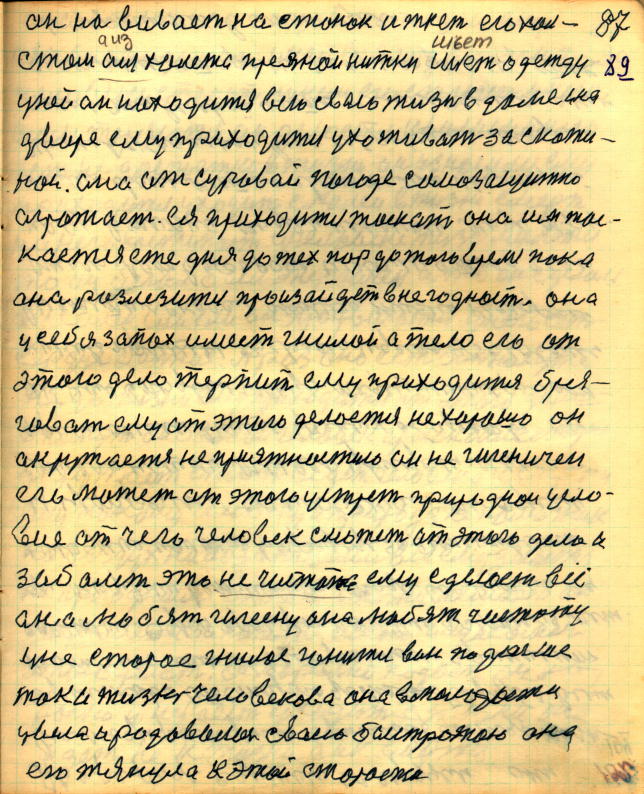 он на вивает на станок и ткет его хол- 87
а из шьет
стом аиз холста пряной нитки шьет одежду 89
у ней он находится всю сваю жизнь в доме на
дваре ему приходится ухоживать за скоти-
ной. она от суровай погоде самозащитно
огрожает. ей приходится таскать она и ли тас-
кается сте дня до тех пор до того время пока
она розлезится произайдет в негодность. она
у себя запах имеет гнилой а тело его от
этого дело терпит ему приходится брез-
говат ему от этого делается нехарашо он
окружается не приятностью он не гигиеничен
его может от этого устрет природной усло-
вие от чего человек сможет от этого дела и
заболет это не чистота ему сделает всё
она любят гигиену она любят чистоту
уже старое гнилое гонити вон подальше
тока жизня человекова она в молодости
цвела и родовалась сваею быстротою она
его тянула к этой старости